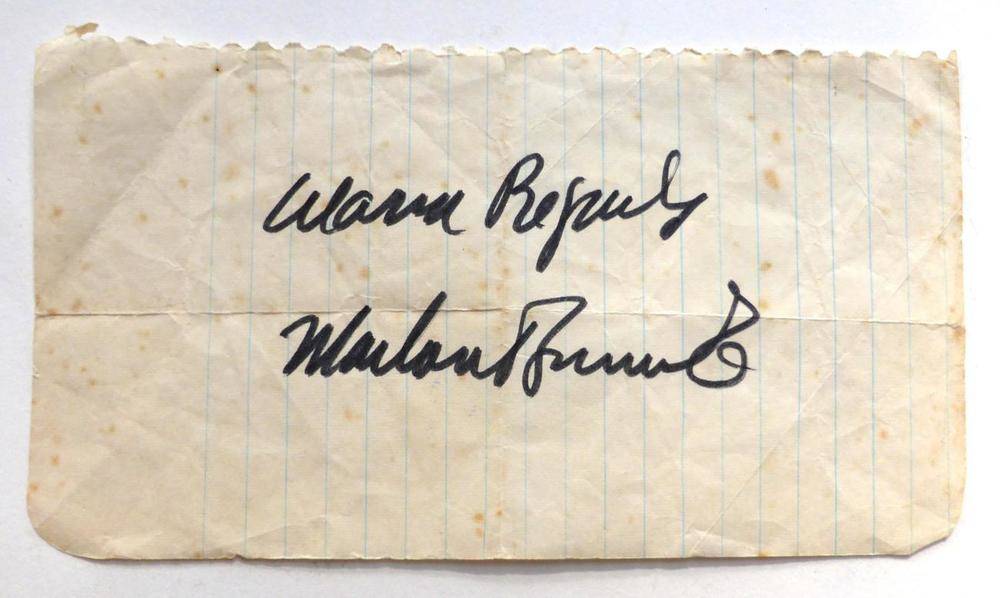 Warm Regards
Marlon Brando